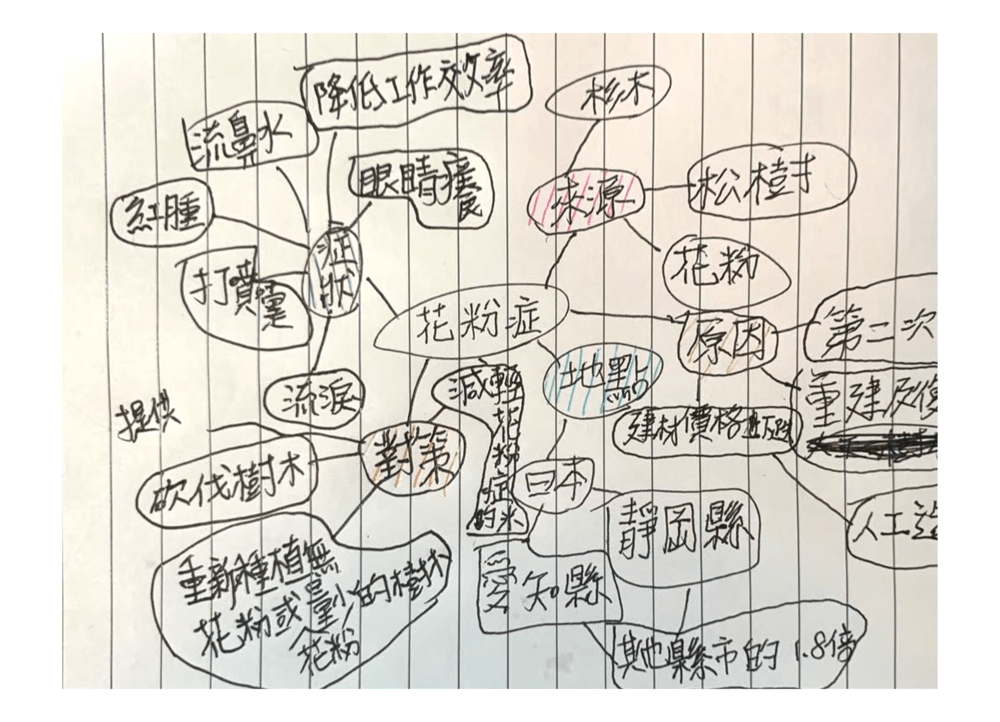 降低工作效率
杉木
流鼻水
眼睛癢
來源
松樹
紅腫
症狀
花粉
打噴嚏
花粉症
原因
第二次
流淚
減輕花粉症的米
地點
重建及復
提供
對策
建材價格
砍伐樹木
日本
靜岡縣
人工造
重新種植無
花粉或量少的樹木
花粉
愛知縣
其他縣市的1.8倍